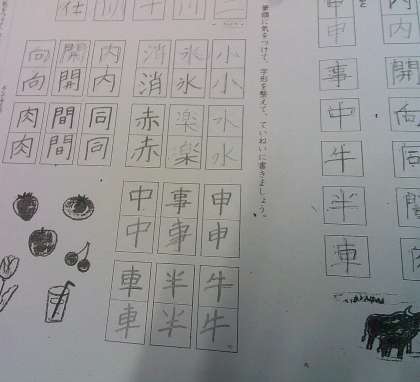 内内
開
申申
事
中
牛
半
車
筆順に気をつけて、字形を整えて、ていねいに書きましょう。
小小
氷氷
消消
水水
楽楽
赤赤
申申
事事
中中
牛牛
半半
車車
内内
開開
向向
同同
間間
肉肉